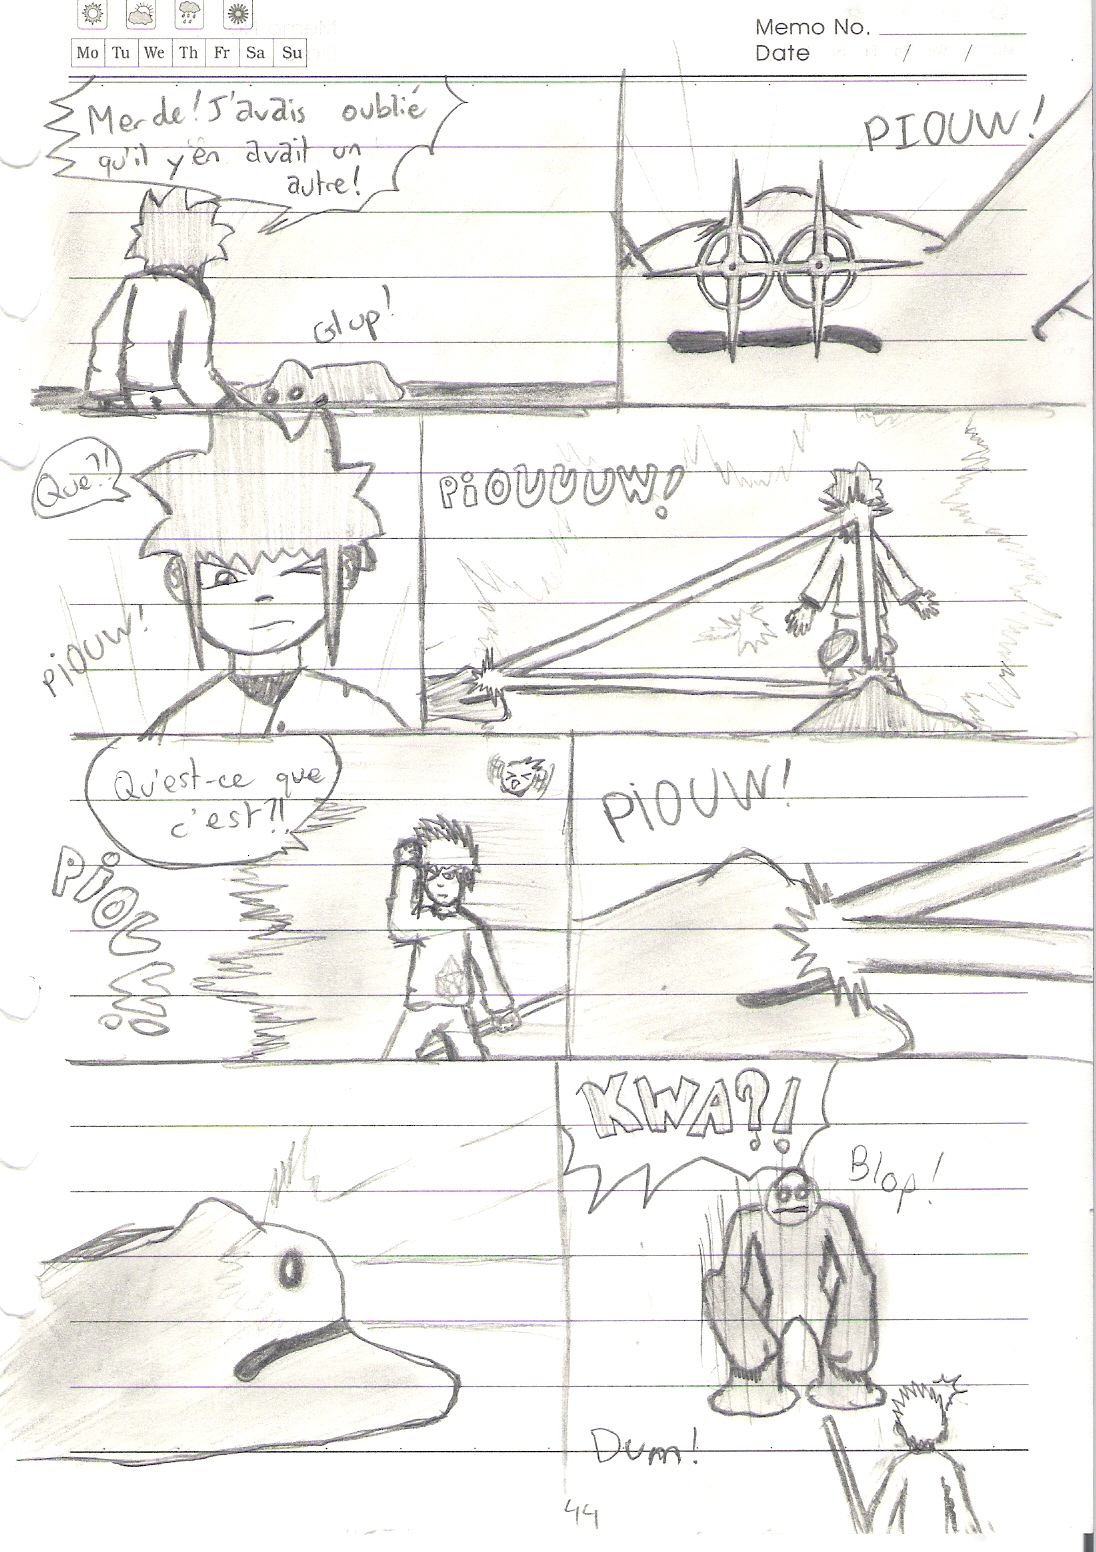 Memo No.
Mo Tu We Th Fr Sa Su
Date / /
Merde! J'avais oublié
qu'il y'en avait un
autre!
Glup!
PIOUW!
Que?!
PIOUW!
PiOUUUW!
Qu'est-ce que
c'est?!!
PiOUW!!
PiOUW!
KWA?!
Blop!
Dum!
44